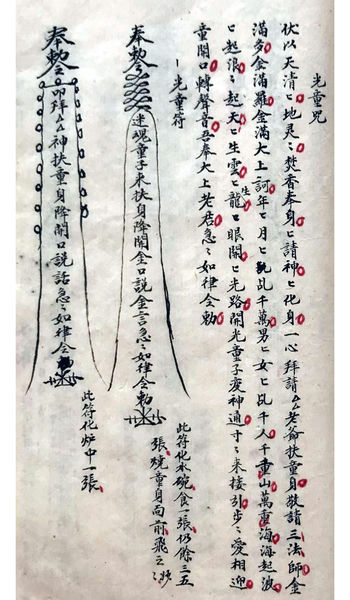 光童咒
伏以天清〻地灵〻焚香奉身〻請神〻化身一心拜請厶厶老爺扶童身敬請三法師金
滿多金滿羅金滿大上訶年〻月〻乩千萬男〻女〻乩千人千重山萬重海海起浪
〻起浪〻起天〻生雲〻生龍〻眼開〻光路開光童子变神通寸〻来接引步〻爱相迎
童開口轉聲音吾奉大上老君急〻如律令勅
一光童符
奉勅
迷魂童子来扶身降開金口説金言急〻如律令勅
此符化水碗食一張仍餘三五
張燒童身向前飛之〻
奉勅令
拜厶厶神扶童身降開口説話急〻如律令勅
此符化炉中一張